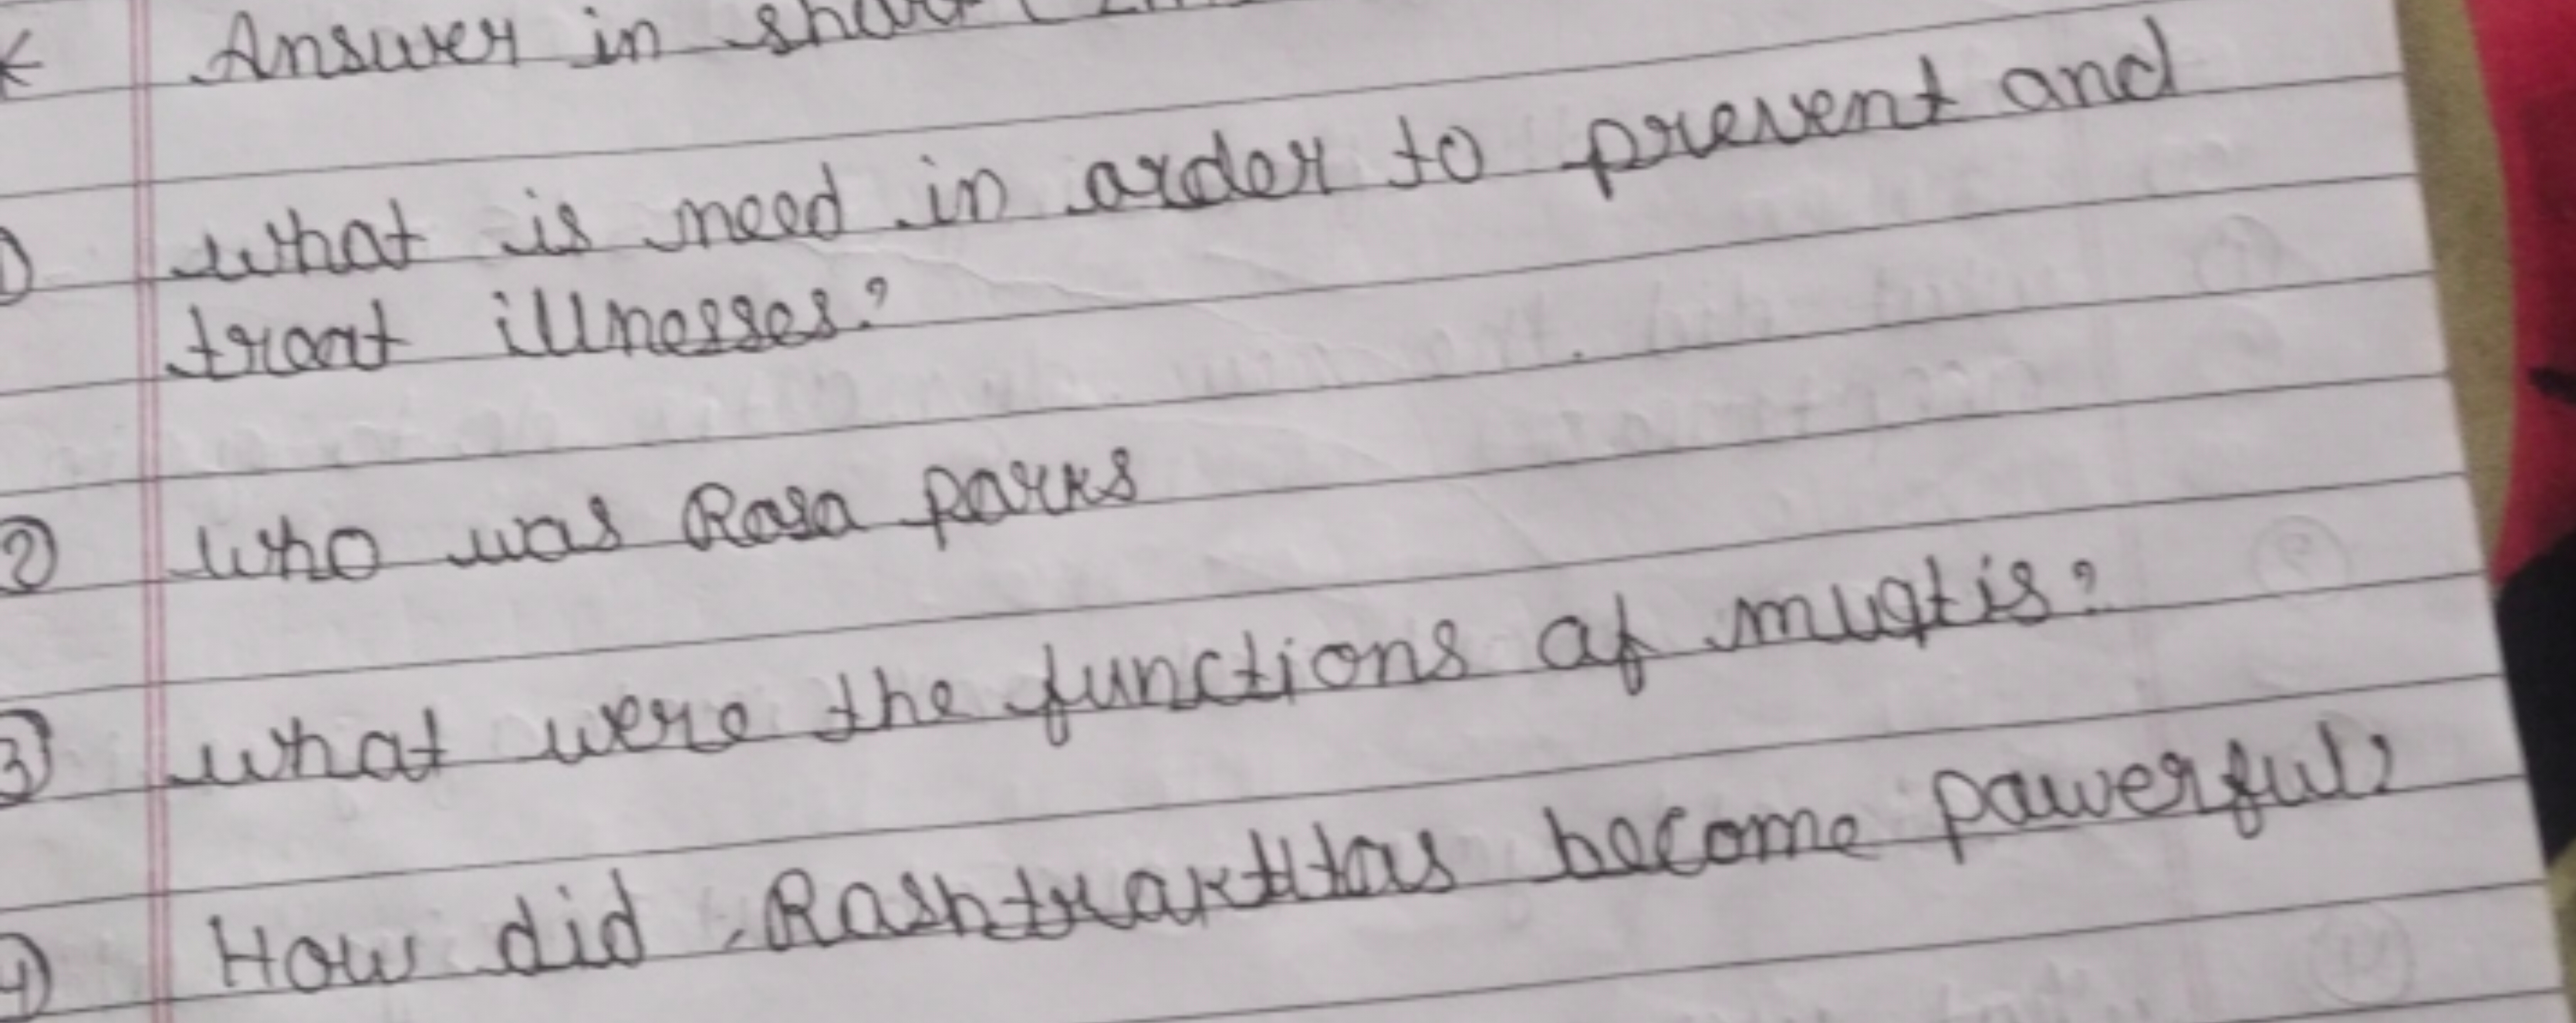 Answer in short
① what is need in order to prevent and
treat illnesses?
② who was Rosa parks
③ what were the functions of muqtis?
④ How did Rashtrakttas become powerful?